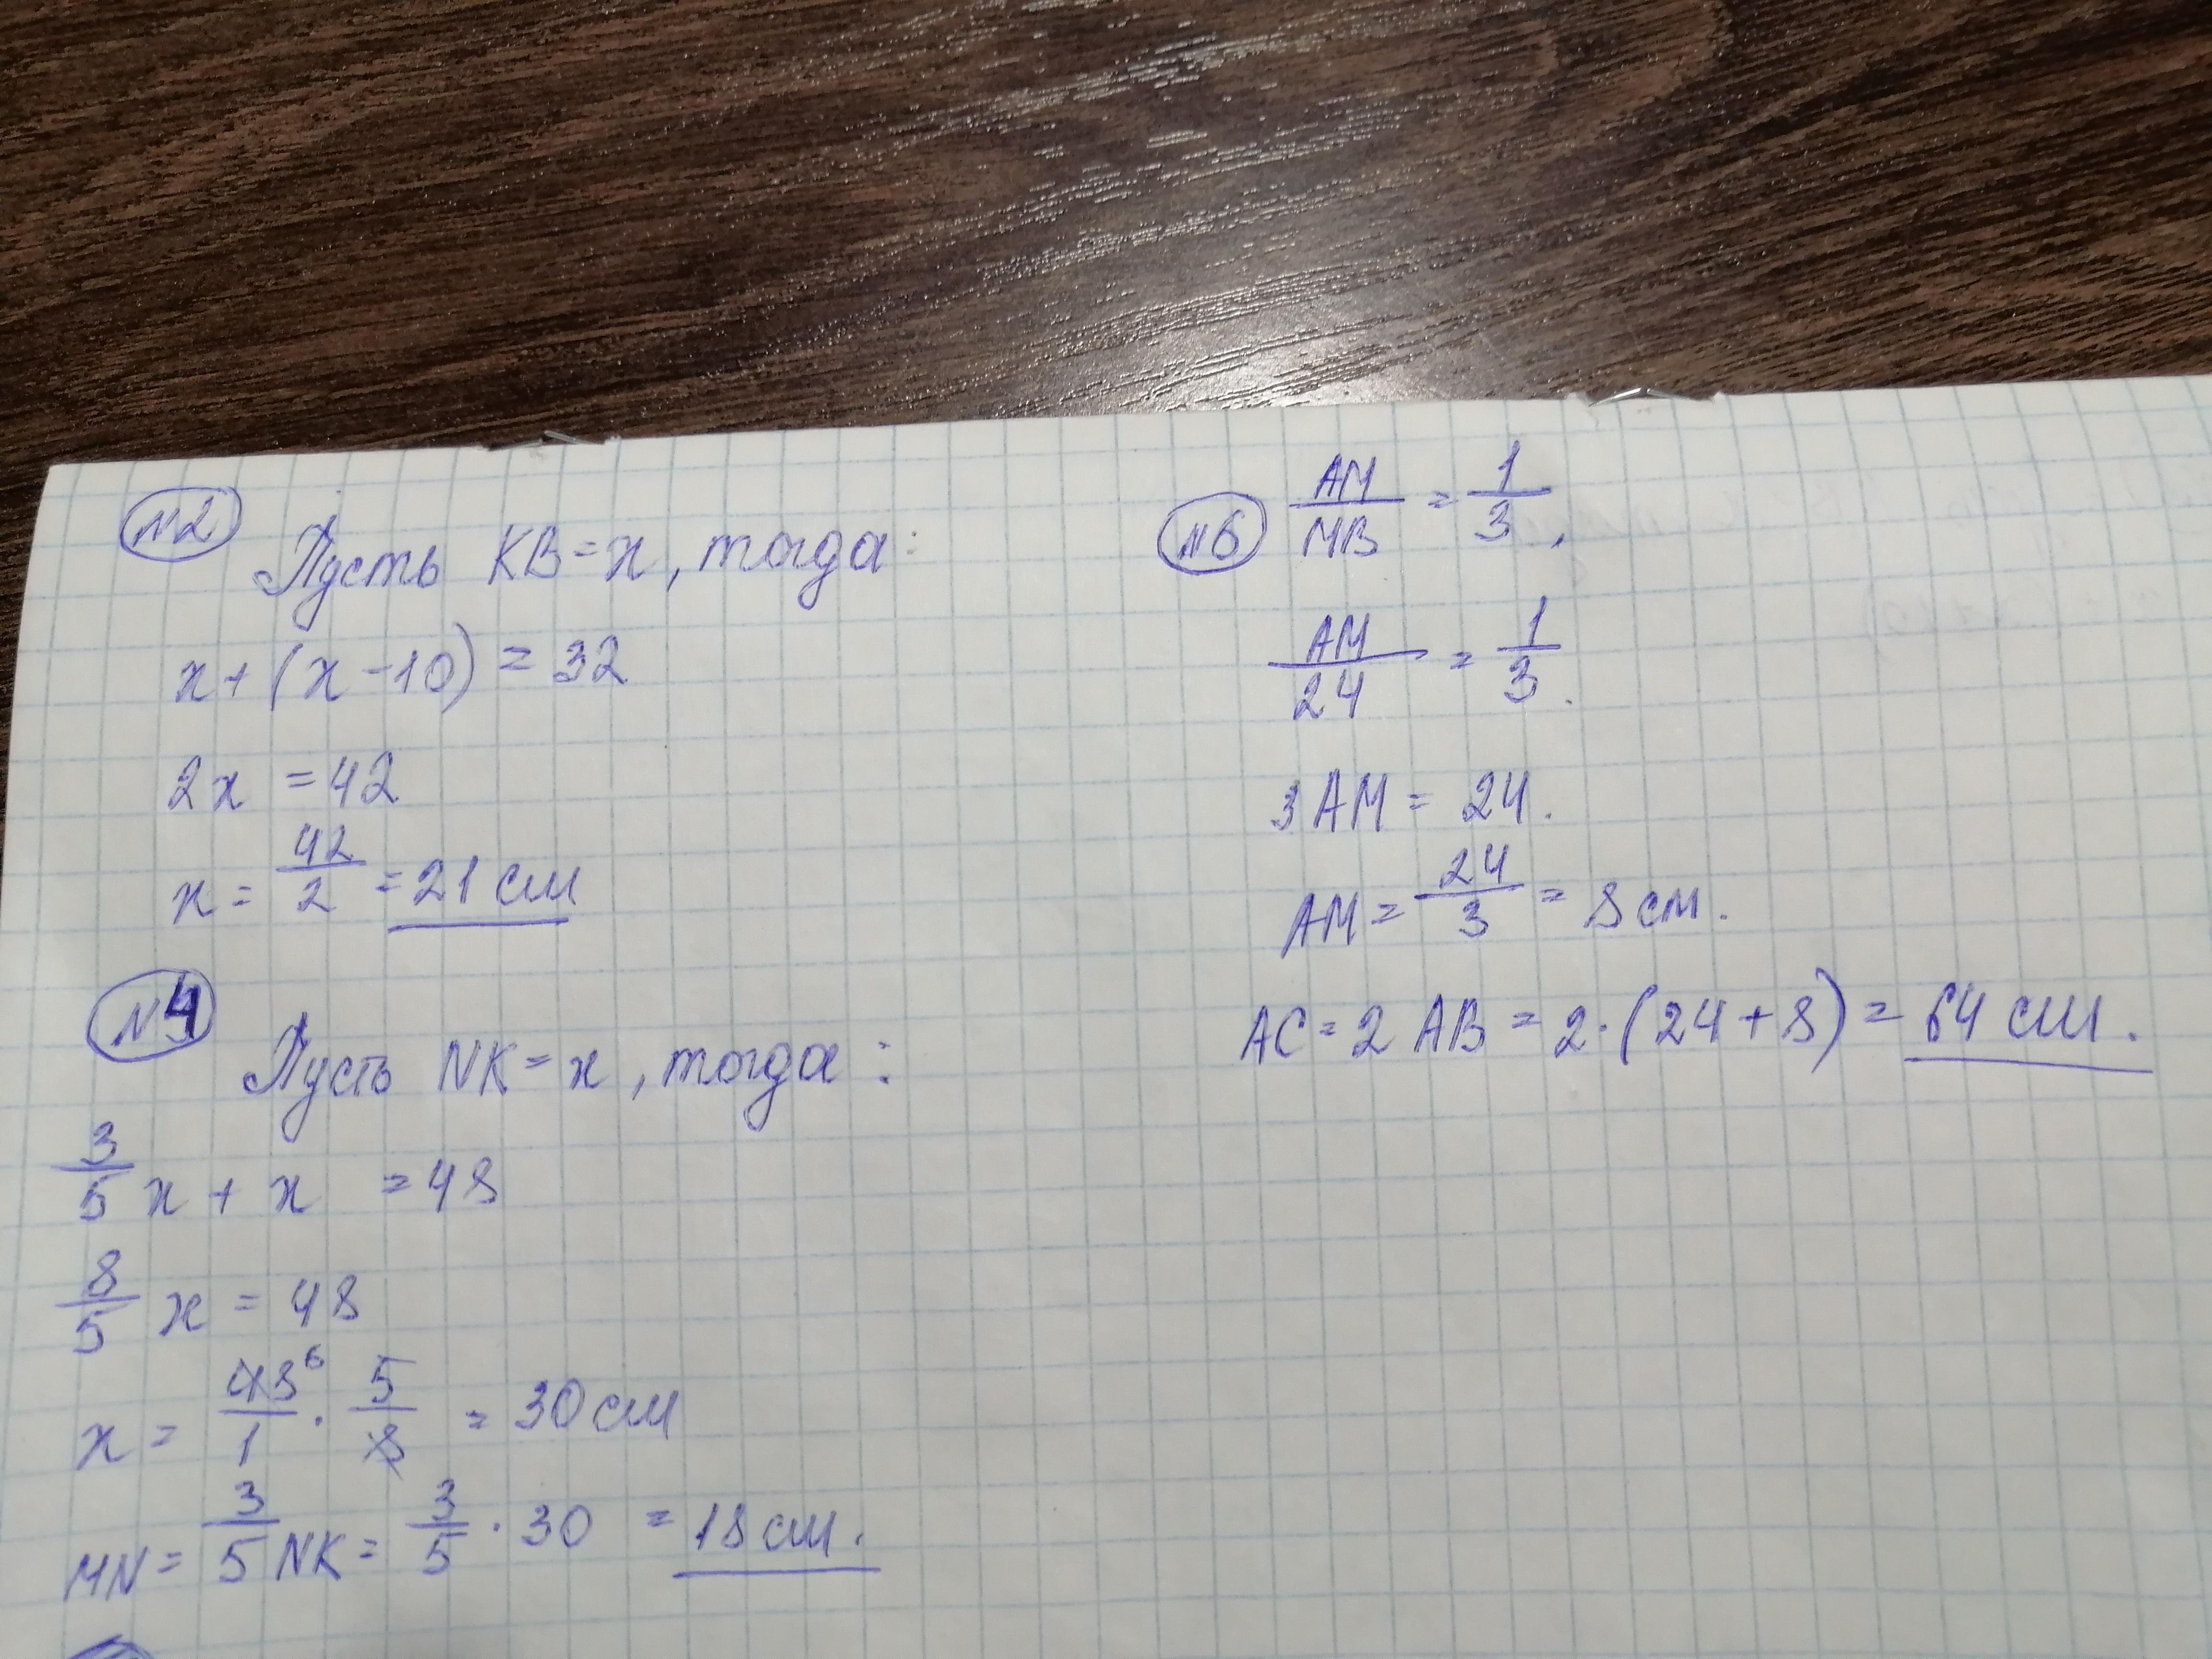 №2 Пусть KB=x, тогда:
x+(x-10)=32
2x =42
x= 42/2 =21 см
№4 Пусть NK=x, тогда:
3/5 x + x = 48
8/5 x = 48
x = 48⁶/1 · 5/8 = 30 см
MN= 3/5 NK= 3/5 · 30 = 18 см.
№6 AM/MB = 1/3,
AM/24 = 1/3.
3 AM = 24.
AM = 24/3 = 8 см.
AC = 2 AB = 2·(24+8) = 64 см.